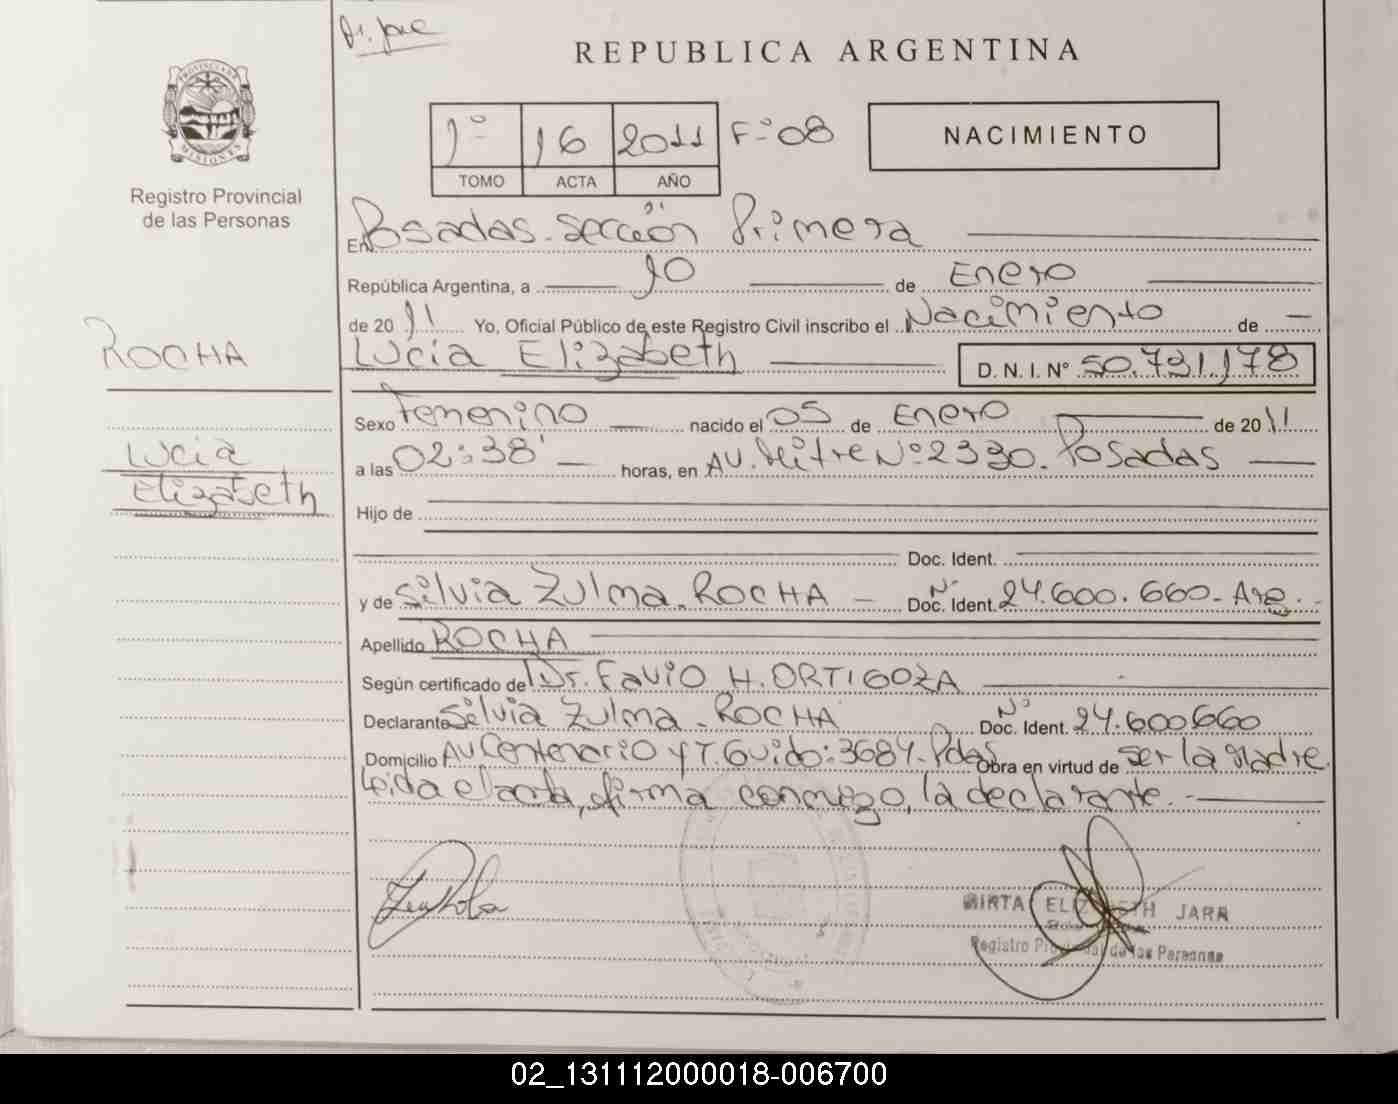 REPUBLICA ARGENTINA
PROVINCIA DE
MISIONES
Registro Provincial
de las Personas
1º 16 2011 F-º08
TOMO ACTA AÑO
NACIMIENTO
En Posadas-Sección Primera
República Argentina, a 10 de Enero
de 2011 Yo, Oficial Público de este Registro Civil inscribo el Nacimiento de
Lucia Elizabeth D. N. I. Nº 50.731.178
ROCHA
Lucia
Elizabeth
Sexo Femenino nacido el 05 de Enero de 2011
a las 02:38' horas, en AV. Mitre Nº 2330. Posadas
Hijo de
Doc. Ident.
y de Silvia Zulma. ROCHA Nº Doc. Ident. 24.600.660-Arg.
Apellido ROCHA
Según certificado de Dr. Favio H. ORTIGOZA
Declarante Silvia Zulma-ROCHA Nº Doc. Ident. 24.600660
Domicilio AV. Centenario y T. Guido: 3684-Pdas Obra en virtud de ser la Madre.
Leida el acta, firma conmigo, la declarante.-
MIRTA ELIZABETH JARA
Registro Provincial de las Personas
02_131112000018-006700